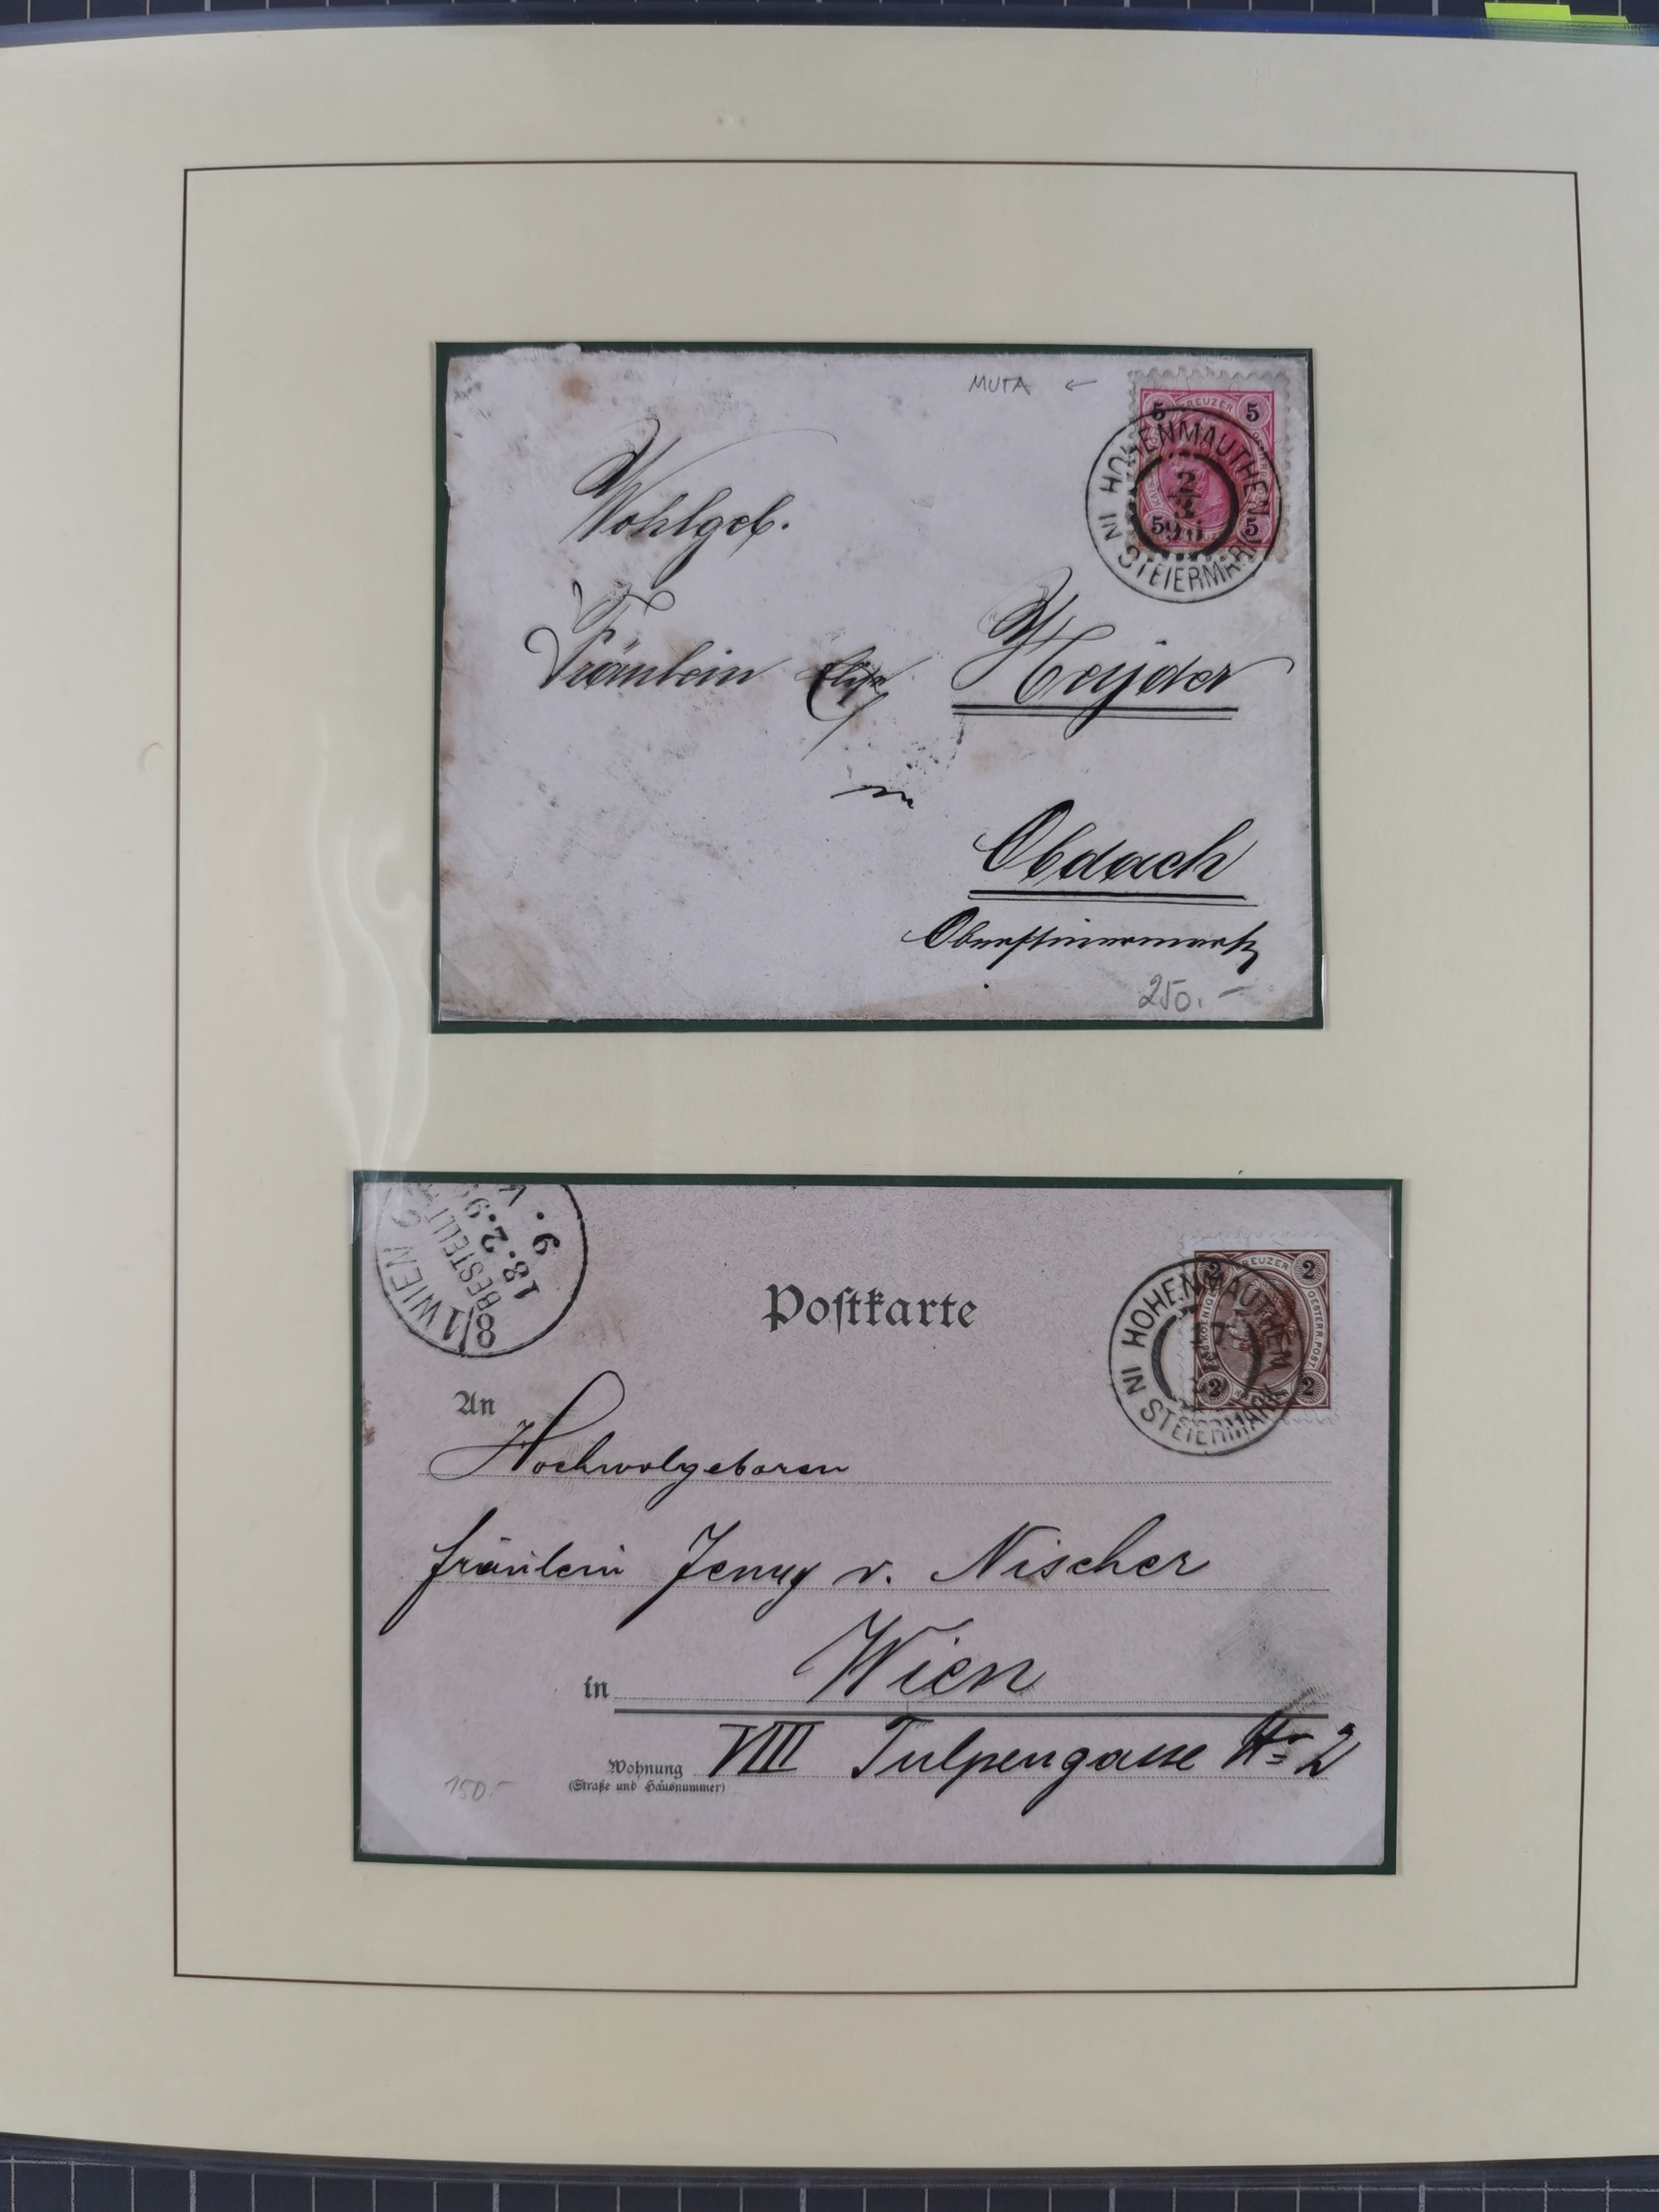 MUTA ←
5 KREUZER 5
HOHENMAUTHEN
IN STEIERMARK
2
3
5 5
Wohlgeb.
Fräulein Heyder
in
Obdach
Obersteiermark
250.-
8/1 WIEN
BESTELLT
18.2.9
9. V
Postkarte
2 KREUZER 2
HOHENMAUTHEN
IN STEIERMARK
OESTERR. POST
2 2
An
Hochwolgeboren
Fräulein Jenny v. Nischer
in Wien
Wohnung VIII Tulpengasse No 2
(Straße und Hausnummer)
150.-